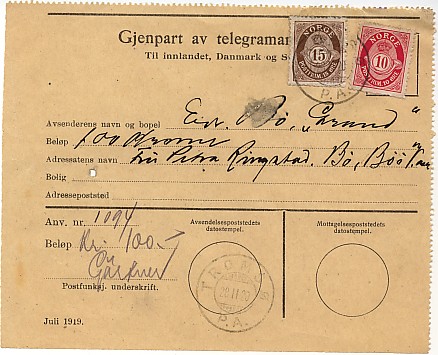 Gjenpart av telegraman
Til innlandet, Danmark og S
NORGE
15
POSTFRIM. 15 ØRE
NORGE
10
POSTFRIM. 10 ØRE
P.A.
Avsenderens navn og bopel Bö, "Grand"
Beløp 100 kroner
Adressatens navn Fru Petra Ringstad. Bö,
Bolig
Adressepoststed
Anv. nr. 1094
Beløp Kr. 100.-
Gartner
Postfunksj. underskrift.
Avsendelsespoststedets
datostempel.
Mottagelsespoststedets
datostempel.
TROMSØ
P.A.
Juli 1919.